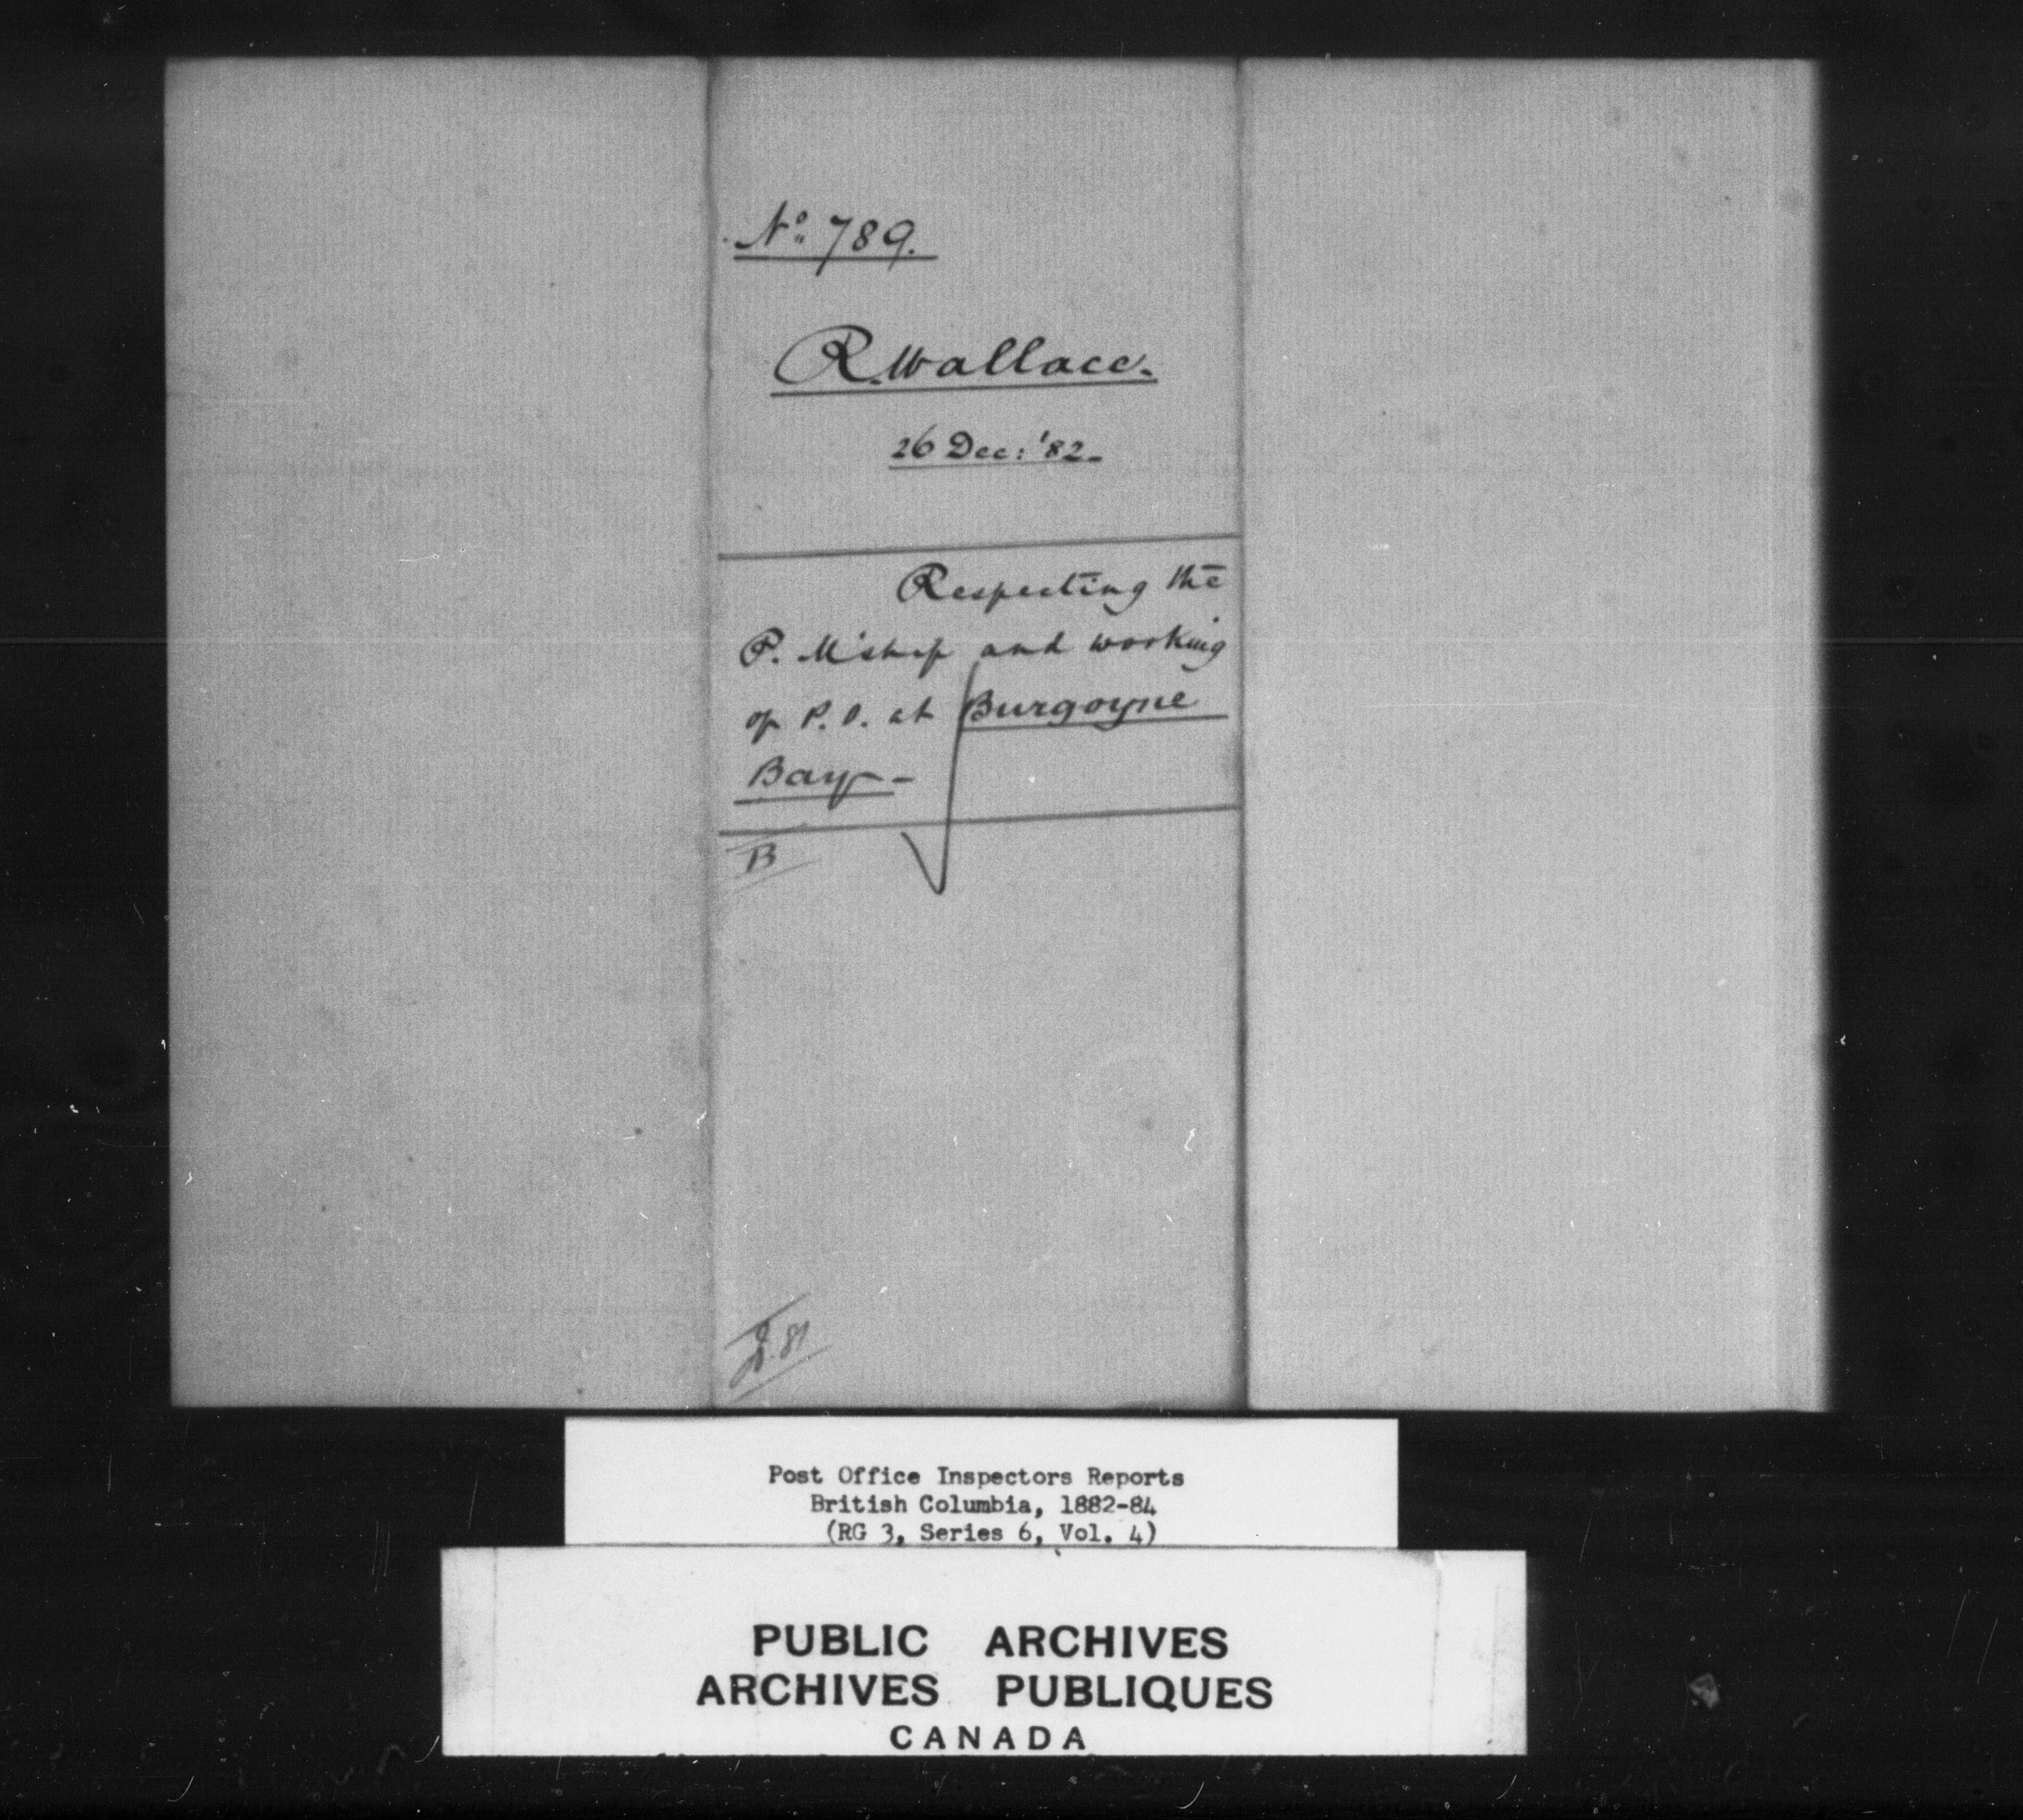 No. 789.
R. Wallace.
26 Dec: '82.
Respecting the
P. M'ship and working
of P. O. at Burgoyne
Bay-
B
Post Office Inspectors Reports
British Columbia, 1882-84
(RG 3, Series 6, Vol. 4)
PUBLIC ARCHIVES
ARCHIVES PUBLIQUES
CANADA